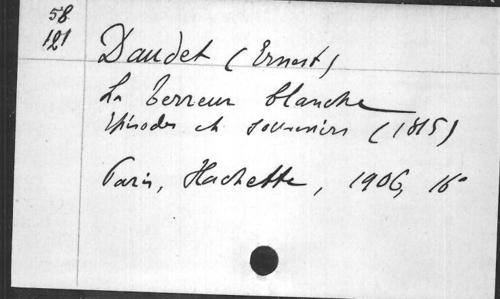 58
121
Daudet (Ernest)
La Terreur blanche
Episodes et souvenirs (1815)
Paris, Hachette, 1906, 16°